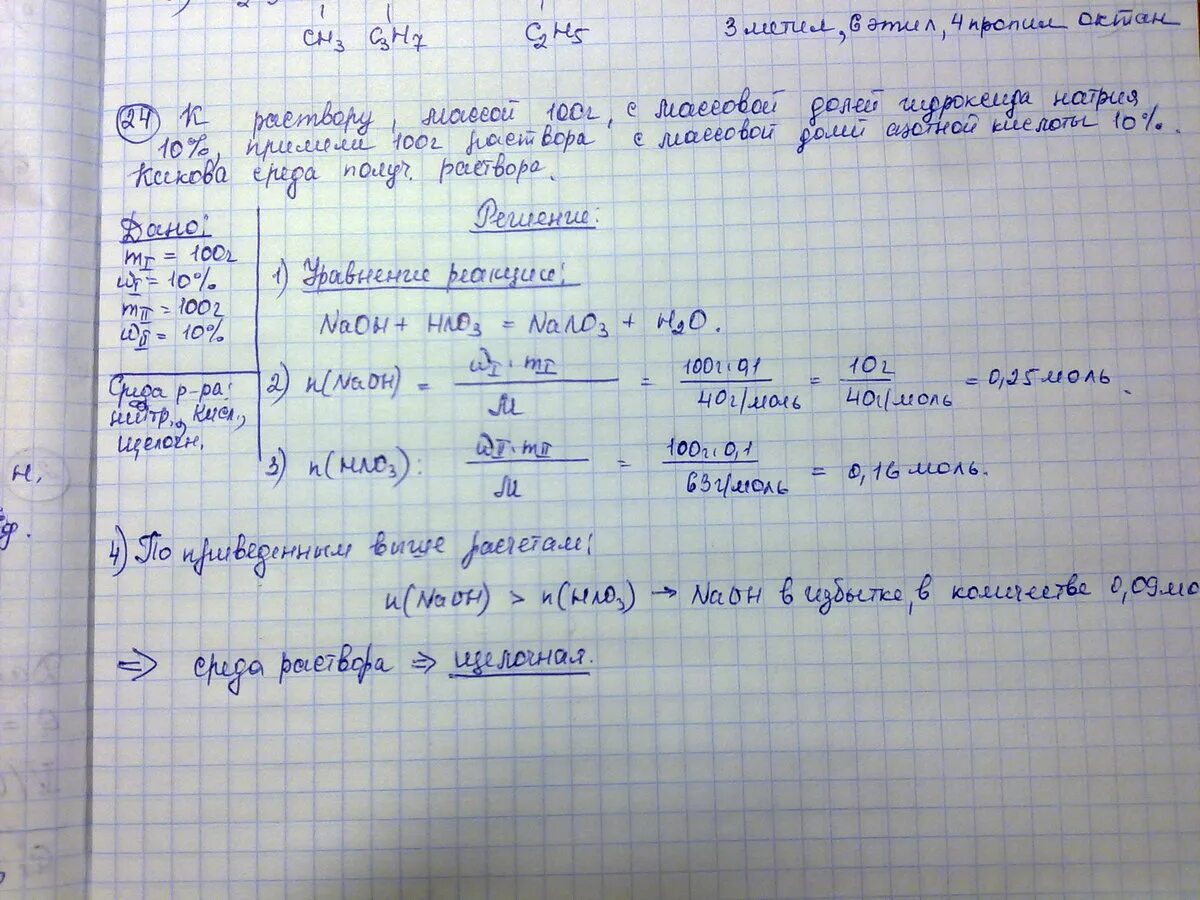 CH3 C3H7 C2H5
3 метил, 6 этил, 4 пропил октан
24 К раствору, массой 100г, с массовой долей гидроксида натрия
10%, прилили 100г раствора с массовой долей азотной кислоты 10%.
Какова среда получ. раствора.
Дано:
mI = 100г
ωI = 10%
mII = 100г
ωII = 10%
Среда р-ра:
нейтр., кисл.,
щелочн.
Решение:
1) Уравнение реакции:
NaOH + HNO3 = NaNO3 + H2O.
2) n(NaOH) = ωI · mI / M = 100г · 0,1 / 40г/моль = 10г / 40г/моль = 0,25 моль.
3) n(HNO3): ωII · mII / M = 100г · 0,1 / 63г/моль = 0,16 моль.
н.
4) По приведенным выше расчетам:
n(NaOH) > n(HNO3) → NaOH в избытке, в количестве 0,09мо
⇒ среда раствора ⇒ щелочная.